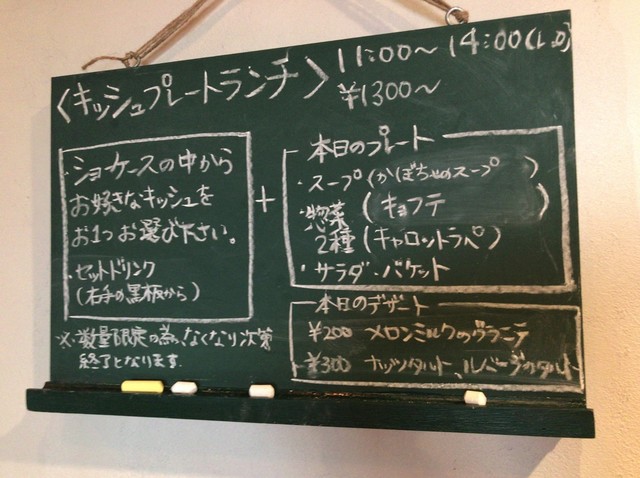 〈キッシュプレートランチ〉
11:00〜14:00(L.O)
¥1300〜
・ショーケースの中から
お好きなキッシュを
お1つお選び下さい。
・セットドリンク
(右手の黒板から)
+
本日のプレート
・スープ(かぼちゃのスープ)
・惣菜(キョフテ)
2種(キャロットラペ)
・サラダ・バケット
※数量限定の為、なくなり次第
終了となります。
本日のデザート
¥200 メロンミルクのグラニテ
¥300 ナッツタルト、ルバーブのタルト